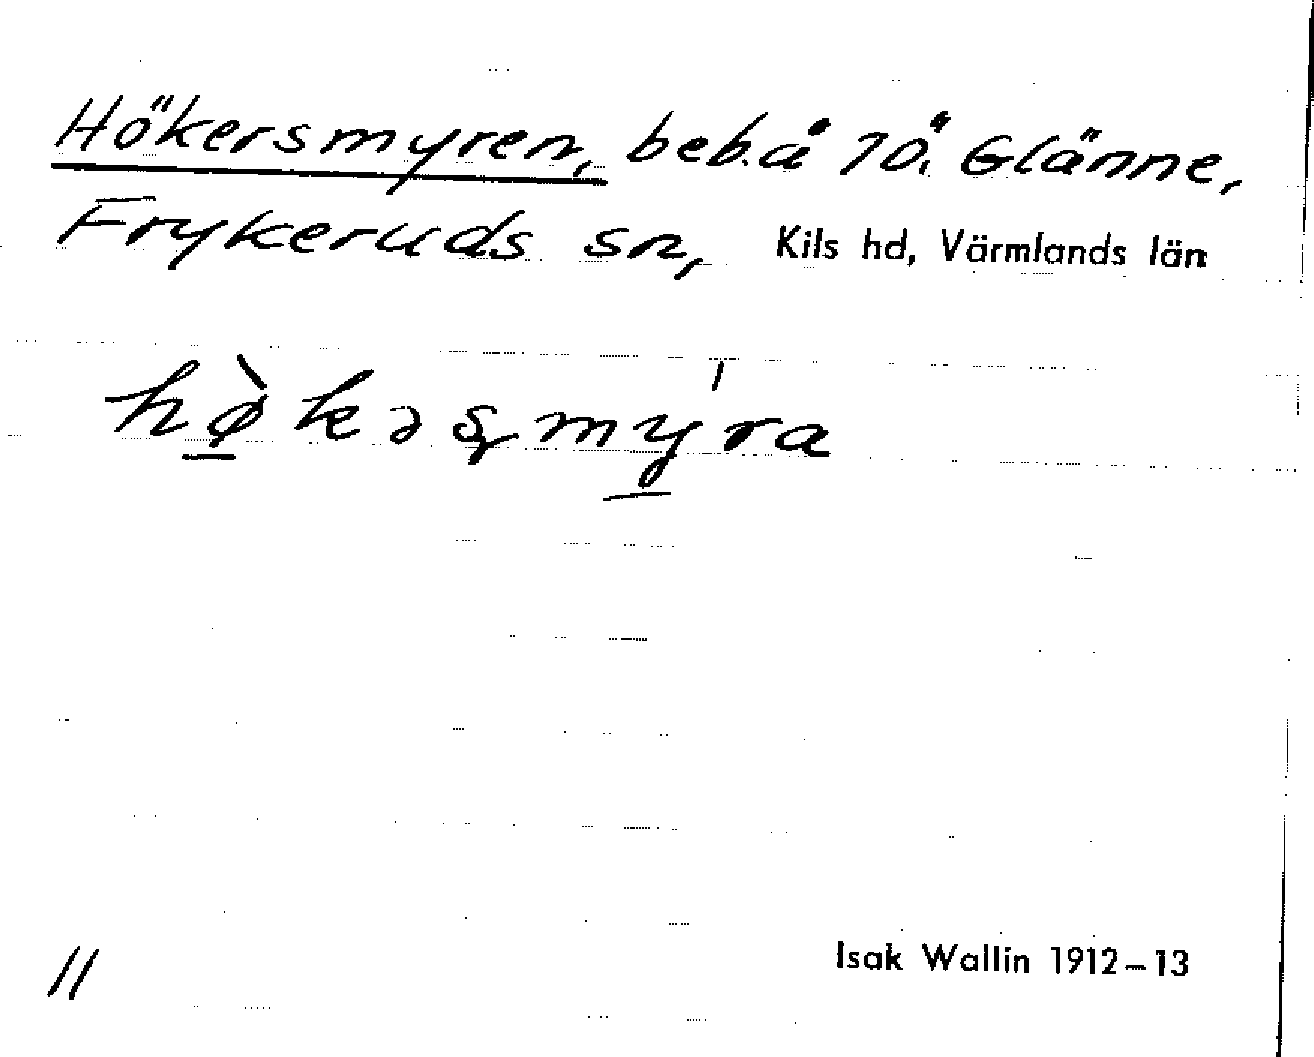 Hökersmyren, beb. å 10. Glänne,
Frykeruds sn, Kils hd, Värmlands län
hø̀kəʂmýra
11
Isak Wallin 1912–13